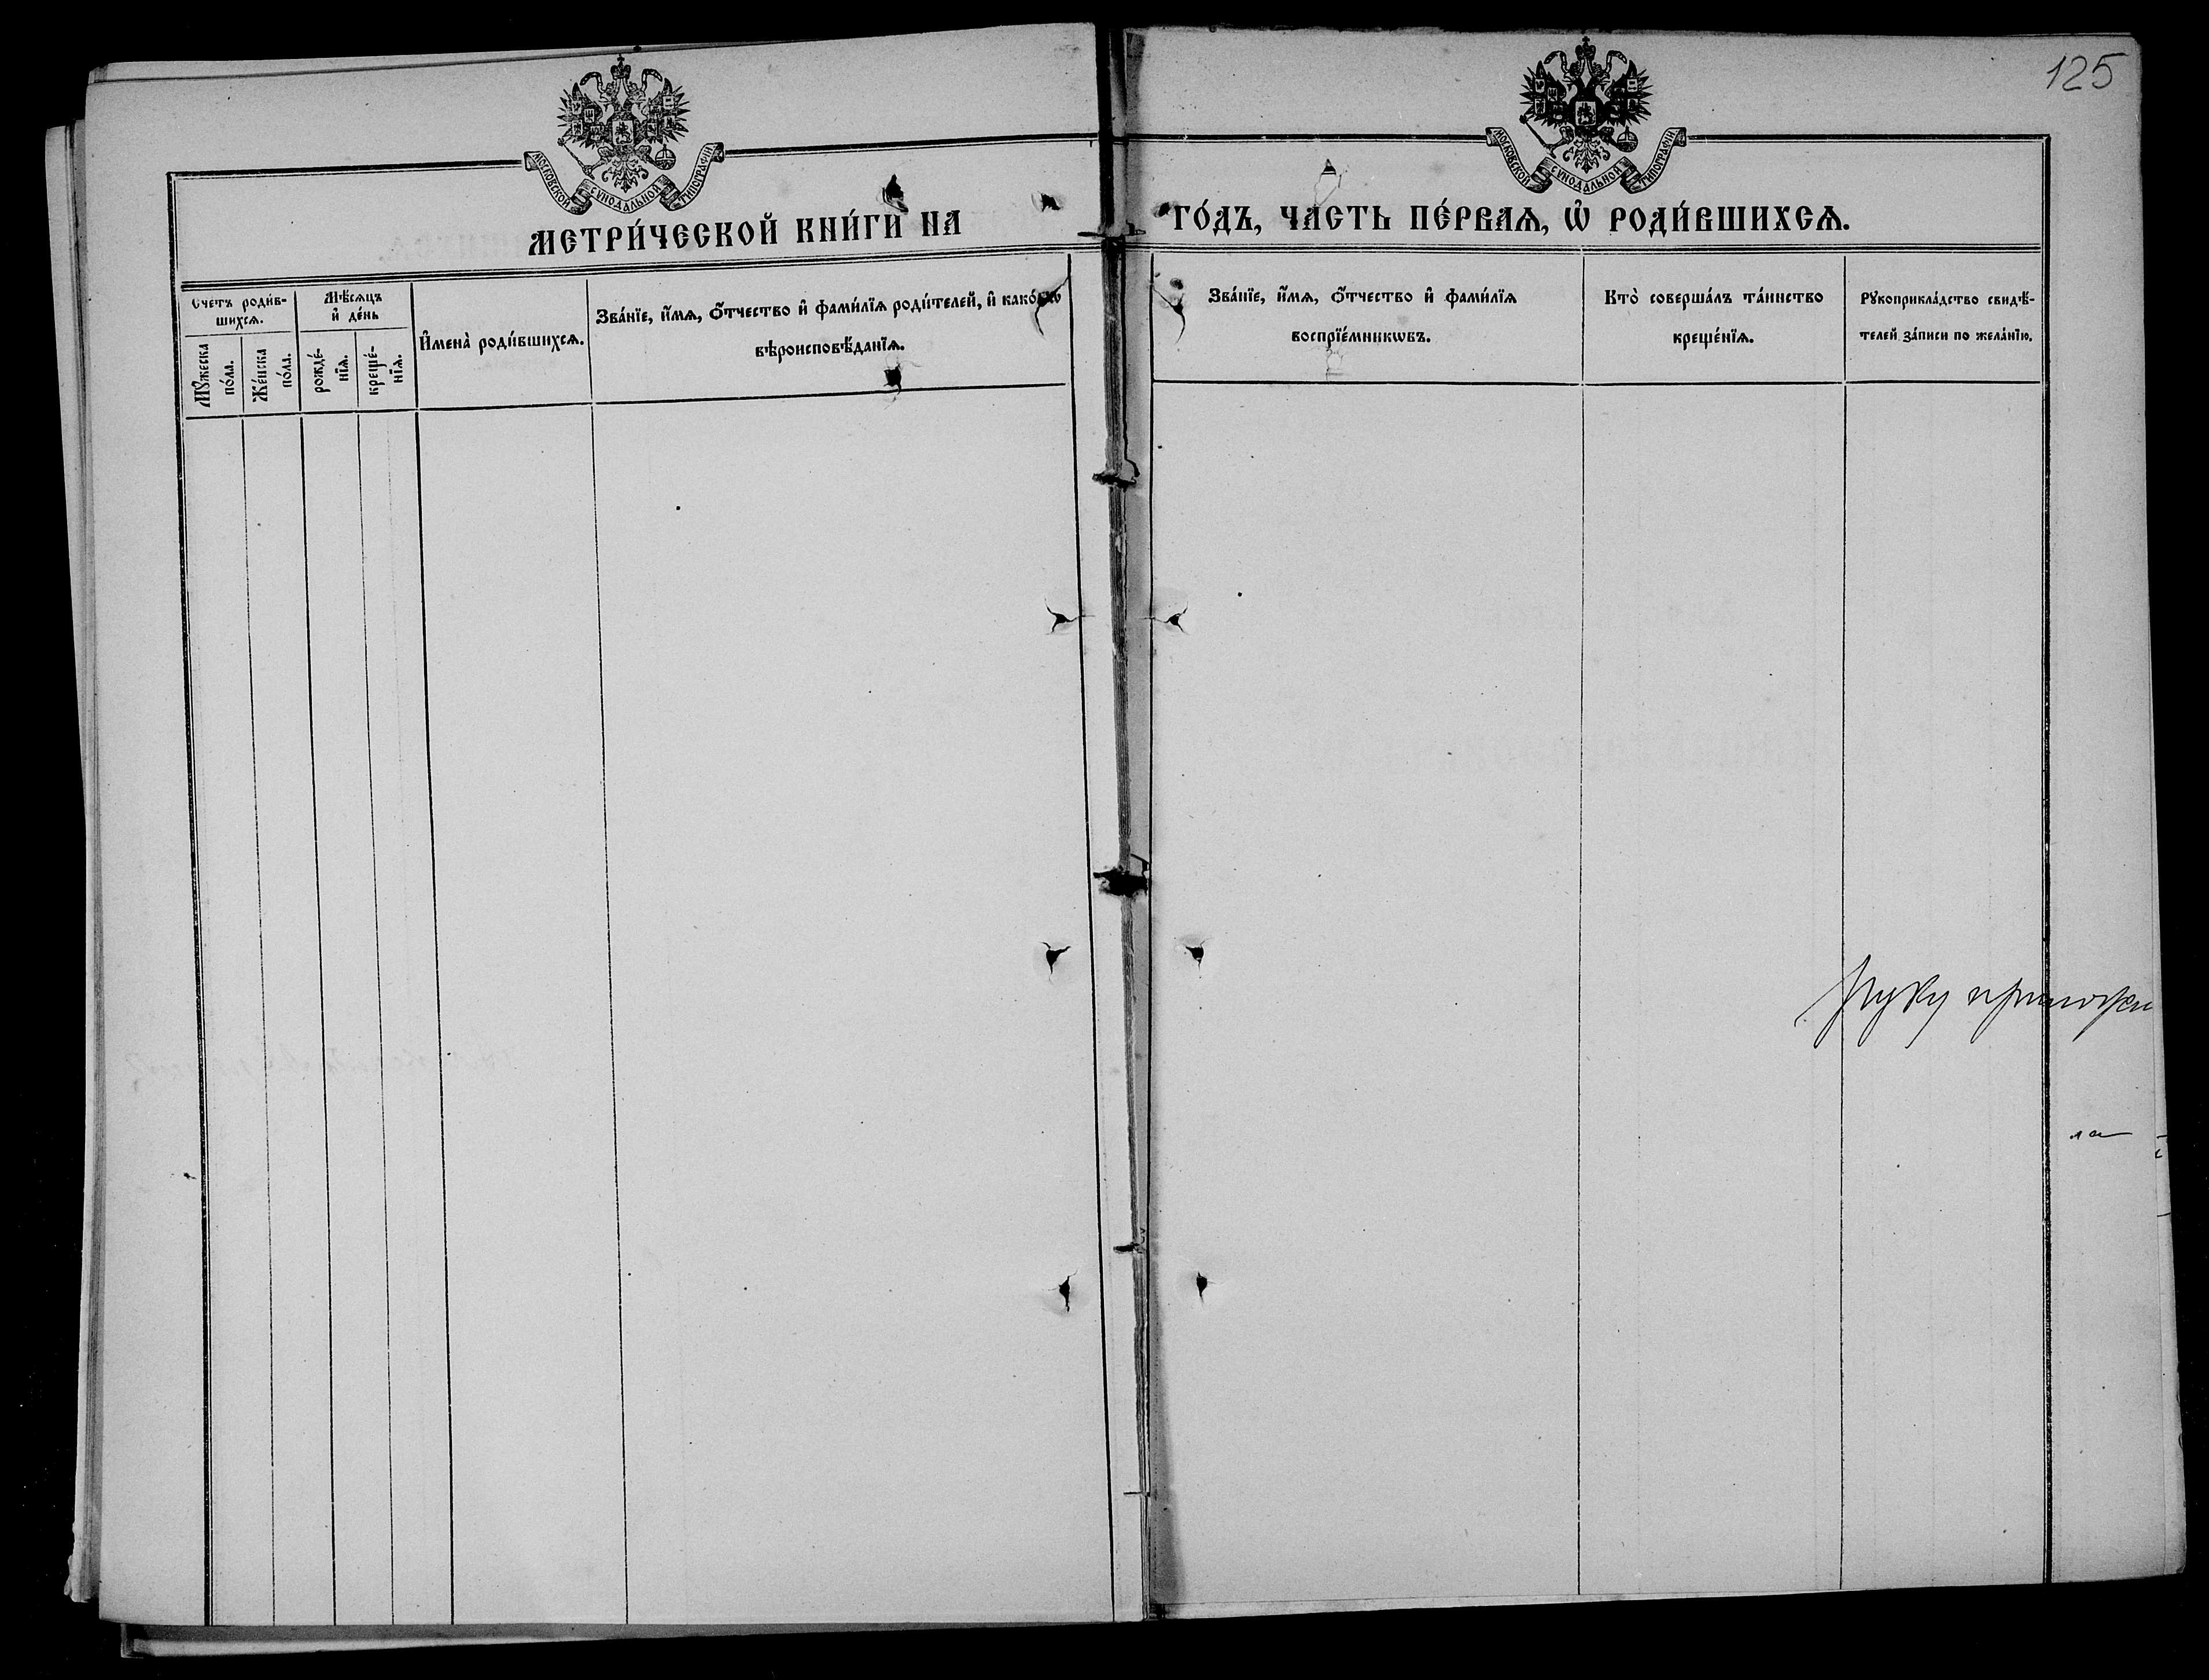 125
МОСКОВСКОЙ СѴНОДАЛЬНОЙ ТИПОГРАФІИ
МОСКОВСКОЙ СѴНОДАЛЬНОЙ ТИПОГРАФІИ
МЕТРИ́ЧЕСКОЙ КНИ́ГИ НА ГО́ДЪ, ЧА́СТЬ ПЕ́РВАѦ, Ѽ РОДИ́ВШИХСѦ.
Счетъ роди́в-
шихсѧ.
Мꙋжеска
по́ла.
Же́нска
по́ла.
Мѣ́сѧцъ
и҆ де́нь
рожде́-
нїѧ.
креще́-
нїѧ.
И҆мена̀ роди́вшихсѧ.
Зва́нїе, и҆́мѧ, ѻ҆́тчество и҆ фами́лїѧ роди́телей, и҆ како́гѡ
вѣроисповѣ́данїѧ.
Зва́нїе, и҆́мѧ, ѻ҆́тчество и҆ фами́лїѧ
воспрїе́мникѡвъ.
Кто̀ соверша́лъ та́инство
креще́нїѧ.
Рꙋкоприкла́дство свидѣ́-
телей за́писи по жела́нїю.
руку приложи
ла